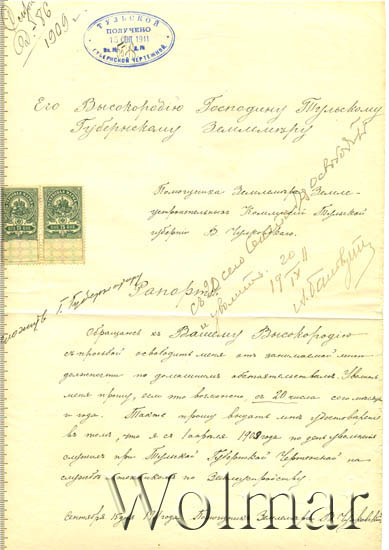 1909.
ТУЛЬСКОЙ
ПОЛУЧЕНО
15 СЕН 1911
ГУБЕРНСКОЙ ЧЕРТЕЖНОЙ.
Его Высокородію Господину Тульскому
Губернскому Землемѣру
Помощника Землемѣра Земле-
устроительныхъ Коммиссій Тульской
губерніи В.
20
19 IX 11
Рапортъ
Обращаясь къ Вашему Высокородію
съ просьбой освободить меня отъ занимаемой мною
должности по домашнимъ обстоятельствамъ. Уволить
меня прошу, если это возможно, съ 20 числа сего мѣсяца
и года. Также прошу выдать мнѣ удостовѣреніе
въ томъ, что я съ 1 апрѣля 1908 года по день увольненія
служилъ при Тульской Губернской Чертежной на
по Землеустройству
Сентября 15 дня 1911 года. Помощникъ Землемѣра В.
Wolmar